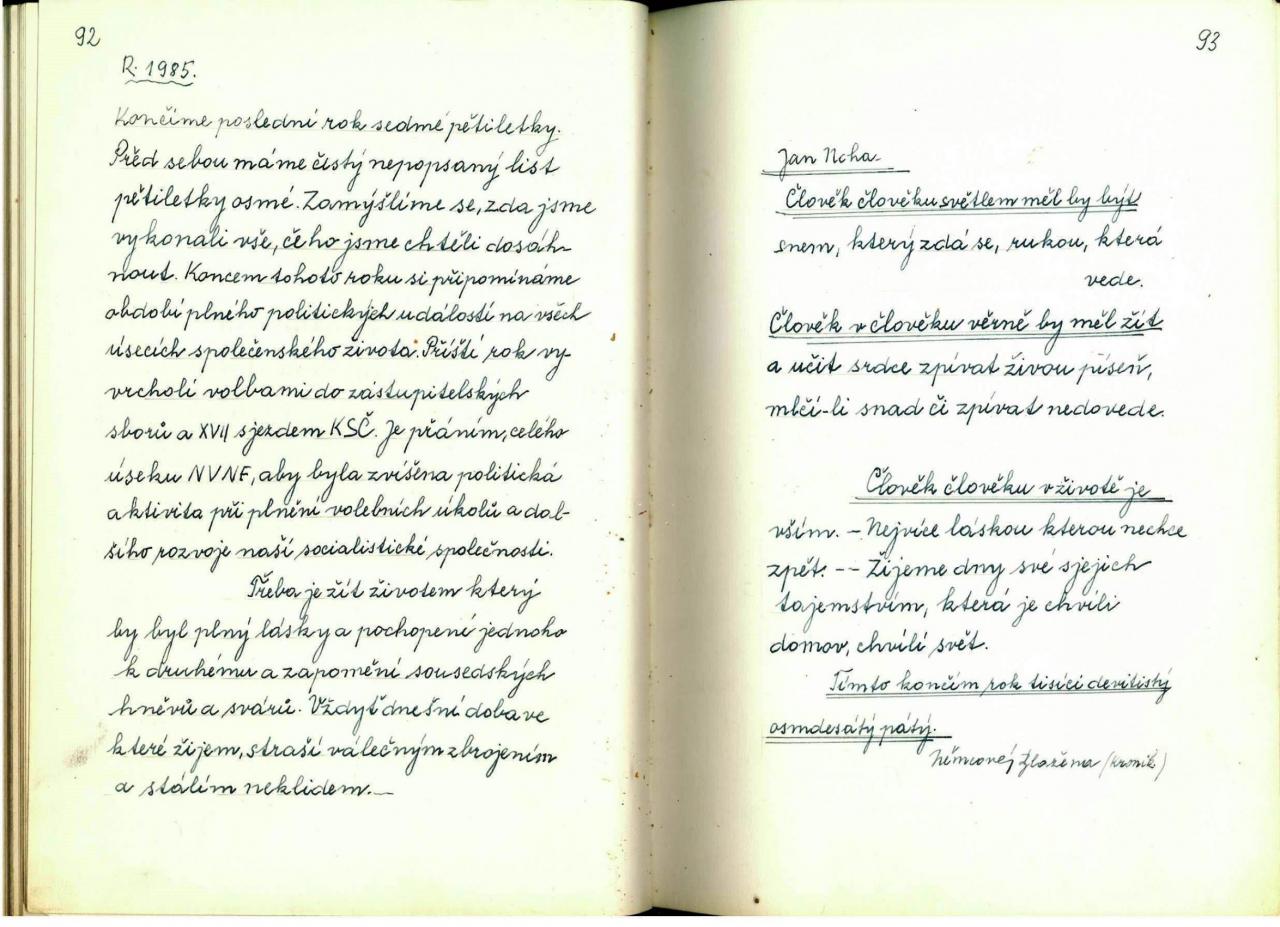 92
R. 1985.
Končíme poslední rok sedmé pětiletky.
Před sebou máme čistý nepopsaný list
pětiletky osmé. Zamýšlíme se, zda jsme
vykonali vše, čeho jsme chtěli dosáh-
nout. Koncem tohoto roku si připomínáme
období plného politických událostí na všech
úsecích společenského života. Příští rok vy-
vrcholí volbami do zástupitelských
sborů a XVII sjezdem KSČ. Je přáním, celého
úseku NVNF, aby byla zvíšena politická
aktivita při plnění volebních úkolů a dal-
šího rozvoje naší socialistické společnosti.
Třeba je žít životem který
by byl plný lásky a pochopení jednoho
k druhému a zapomění sousedských
hněvů a svárů. Vždyť dnešní doba ve
které žijem, straší válečným zbrojením
a stálím neklidem.—
93
Jan Ncha-
Člověk člověku světlem měl by být
snem, který zdá se, rukou, která
vede.
Člověk v člověku věrně by měl žít
a učit srdce zpívat živou píseň,
mlčí-li snad či zpívat nedovede.
Člověk člověku v životě je
vším. - Nejvíce láskou kterou nechce
zpět. -- Žijeme dny své s jejich
tajemstvím, která je chvíli
domov, chvílí svět.
Tímto končím rok tisící devítistý
osmdesátý pátý.
(kronik)